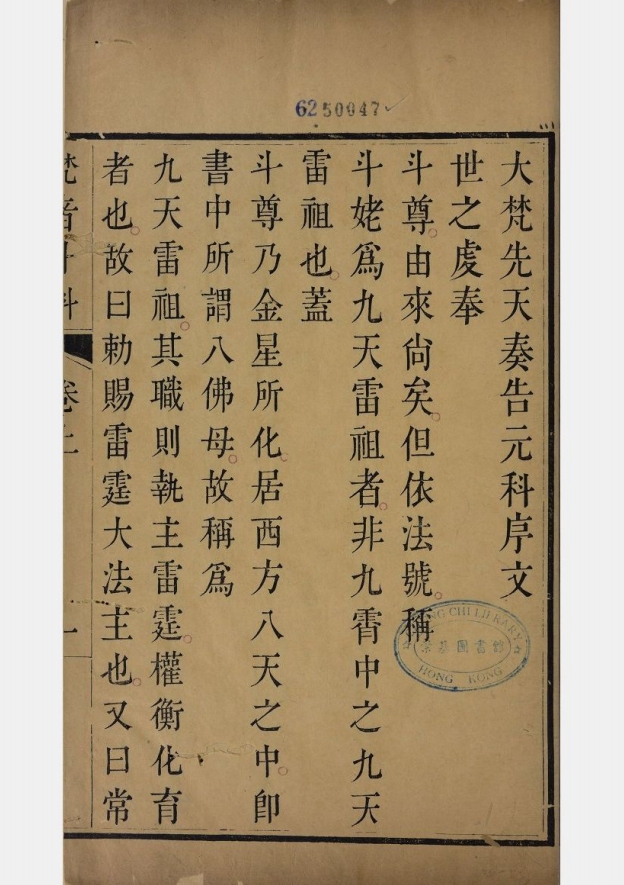 6250047
大梵先天奏告元科序文
世之虔奉
斗尊由來尙矣但依法號稱
斗姥爲九天雷祖者非九霄中之九天
雷祖也蓋
斗尊乃金星所化居西方八天之中卽
書中所謂八佛母故稱爲
九天雷祖其職則執主雷霆權衡化育
者也故曰勅賜雷霆大法主也又曰常
梵音斗科
卷上
一
CHI LIBRARY
圖書館
HONG KONG